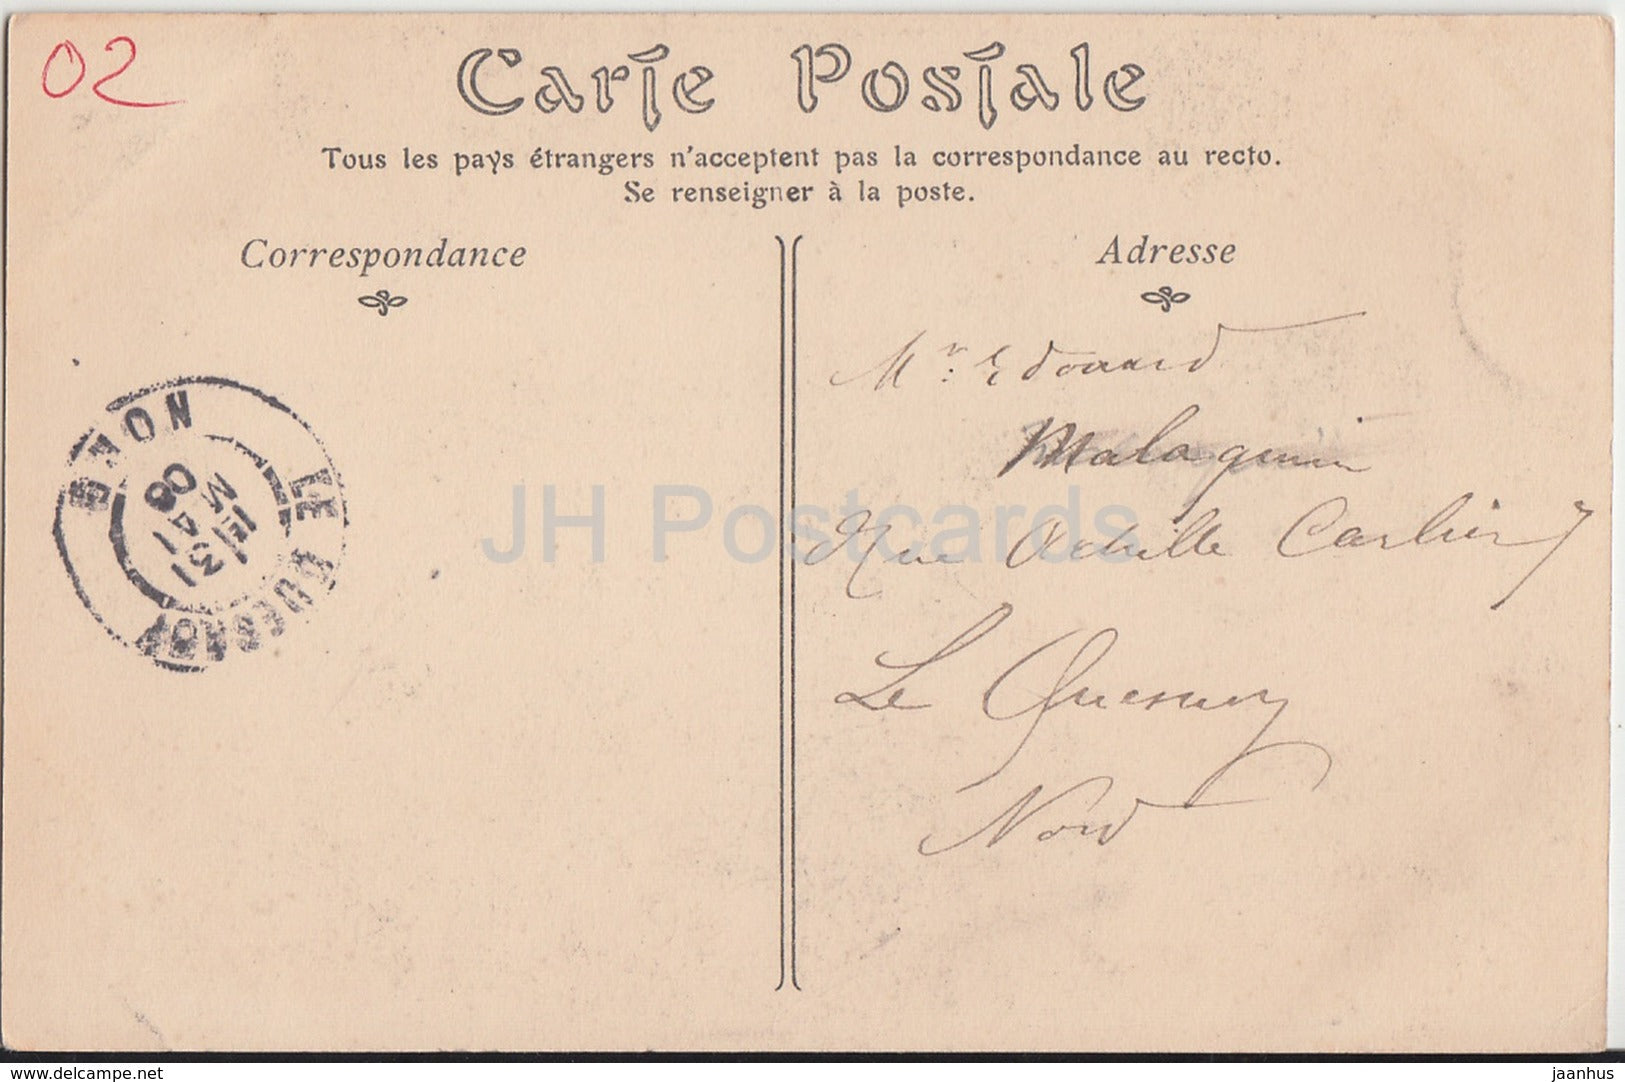 02
Carte Postale
Tous les pays étrangers n'acceptent pas la correspondance au recto.
Se renseigner à la poste.
Correspondance
Adresse
Mr. Edouard
Malaquin
Rue Achille Carlier 7
Le Quesnoy
Nord
LE QUESNOY
NORD
31
08
JH Postcards
delcampe.net
jaanhus